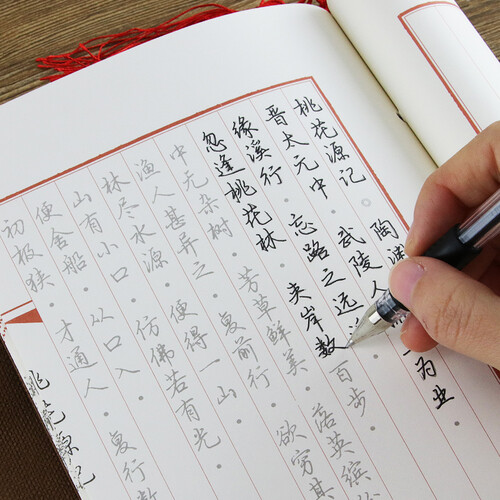 桃花源记。陶渊
晋太元中 武陵人 为业
缘溪行 忘路之远
忽逢桃花林 夹岸数百步·
中无杂树·芳草鲜美·落英缤
渔人甚异之·复前行·欲穷其
林尽水源·便得一山
山有小口·仿佛若有光·
便舍船·从口入·
初极狭·才通人·复行数
桃花源记